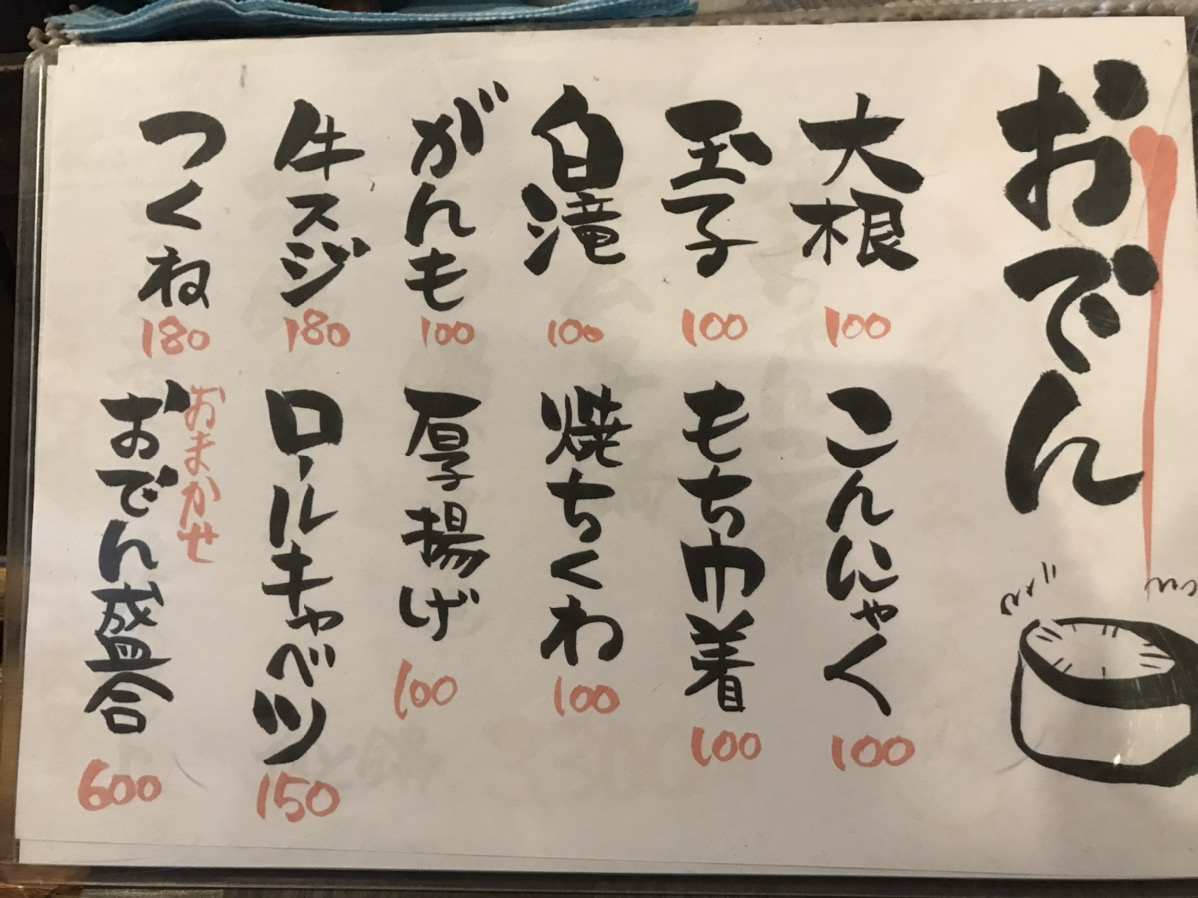 おでん
大根
100
玉子
100
白滝
100
がんも
100
牛スジ
180
つくね
180
こんにゃく
100
もち巾着
100
焼ちくわ
100
厚揚げ
100
ロールキャベツ
150
おまかせ
おでん盛合
600